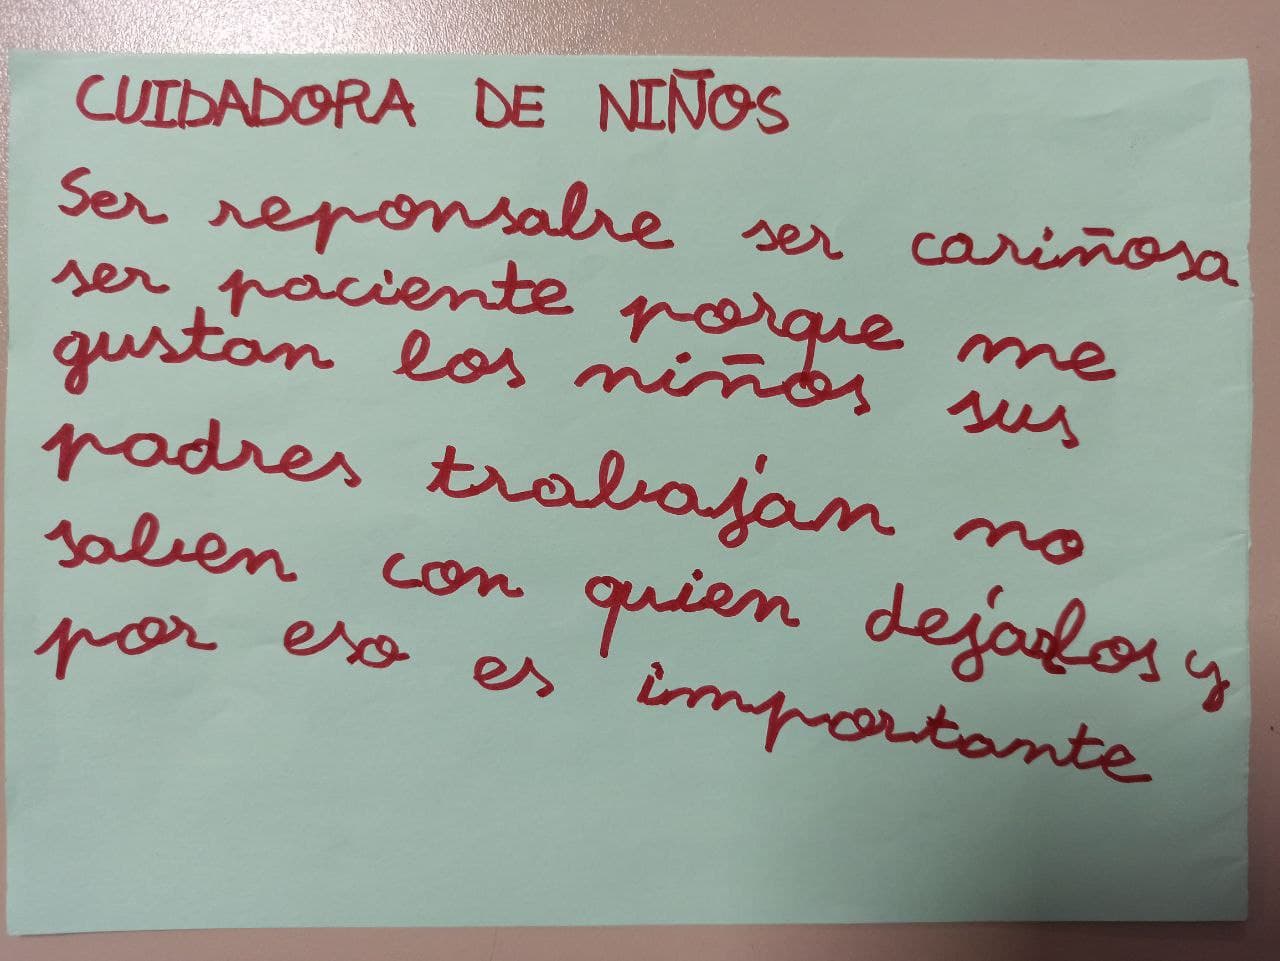 CUIDADORA DE NIÑOS
Ser reponsalre ser cariñosa
ser paciente porque me
gustan los niños sus
padres trabajan no
saben con quien dejarlos y
por eso es importante